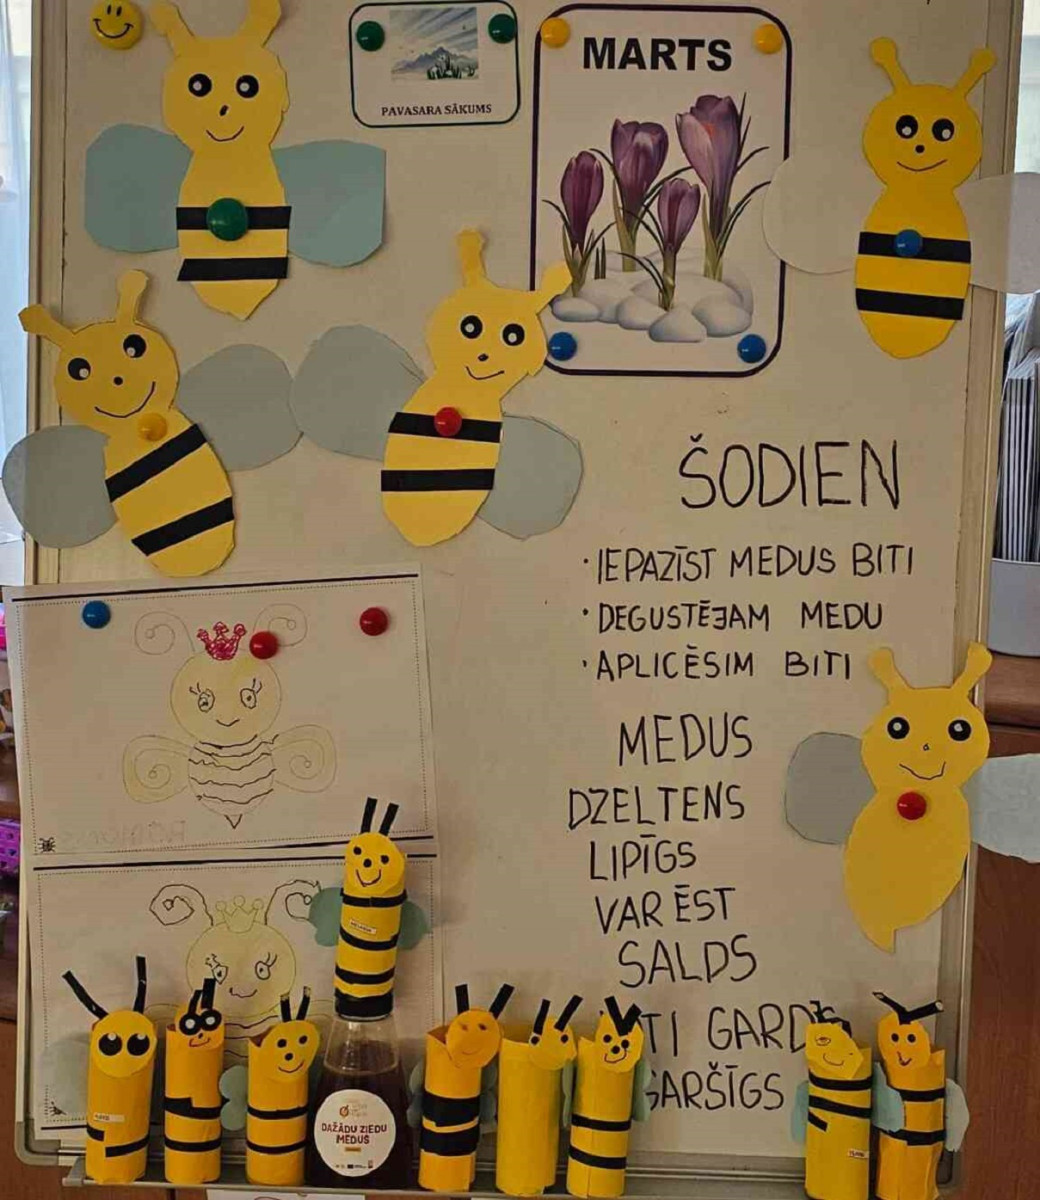 PAVASARA SĀKUMS
MARTS
ŠODIEN
· IEPAZĪST MEDUS BITI
· DEGUSTĒJAM MEDU
· APLICĒSIM BITI
MEDUS
DZELTENS
LIPĪGS
VAR ĒST
SALDS
GARDS
GARŠĪGS
DAŽĀDU ZIEDU
MEDUS